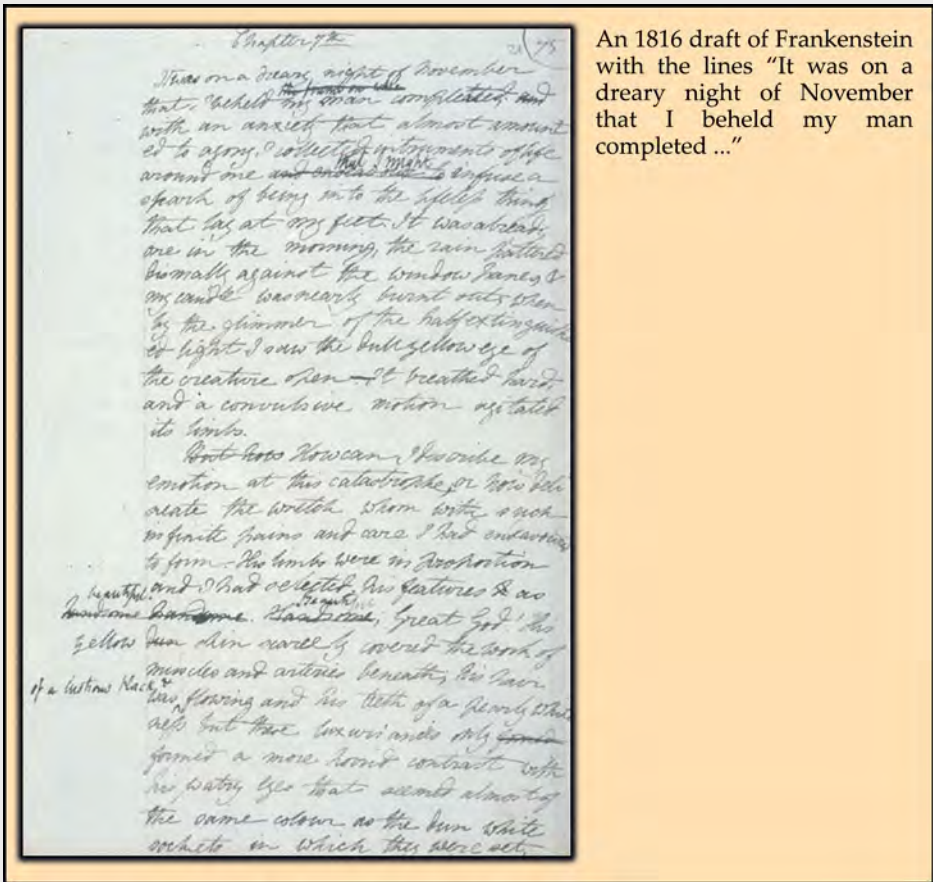 Chapter 7th
21 75
It was on a dreary night of November
the frame on whic
that I beheld my man completed and
with an anxiety that almost amount
ed to agony I collected instruments of life
that I might
around me and to infuse a
spark of being into the lifeless thing
that lay at my feet. It was already
one in the morning, the rain pattered
dismally against the window panes, &
my candle was nearly burnt out, when
by the glimmer of the half extinguish
ed light I saw the dull yellow eye of
the creature open—It breathed hard,
and a convulsive motion agitated
its limbs.
But how How can I describe my
emotion at this catastrophe, or how deli
neate the wretch whom with such
infinite pains and care I had endeavoured
to form. His limbs were in proportion
and I had selected his features & as
beautiful
handsome handsome. Handsome, Beautiful Great God! His
yellow dun skin scarcely covered the work of
muscles and arteries beneath; his hair
of a lustrous black, &
was flowing and his teeth of a pearly white
ness but these luxuriances only formed
formed a more horrid contrast with
his watry eyes that seemed almost of
the same colour as the dun white
sockets in which they were set,
An 1816 draft of Frankenstein
with the lines “It was on a
dreary night of November
that I beheld my man
completed ...”